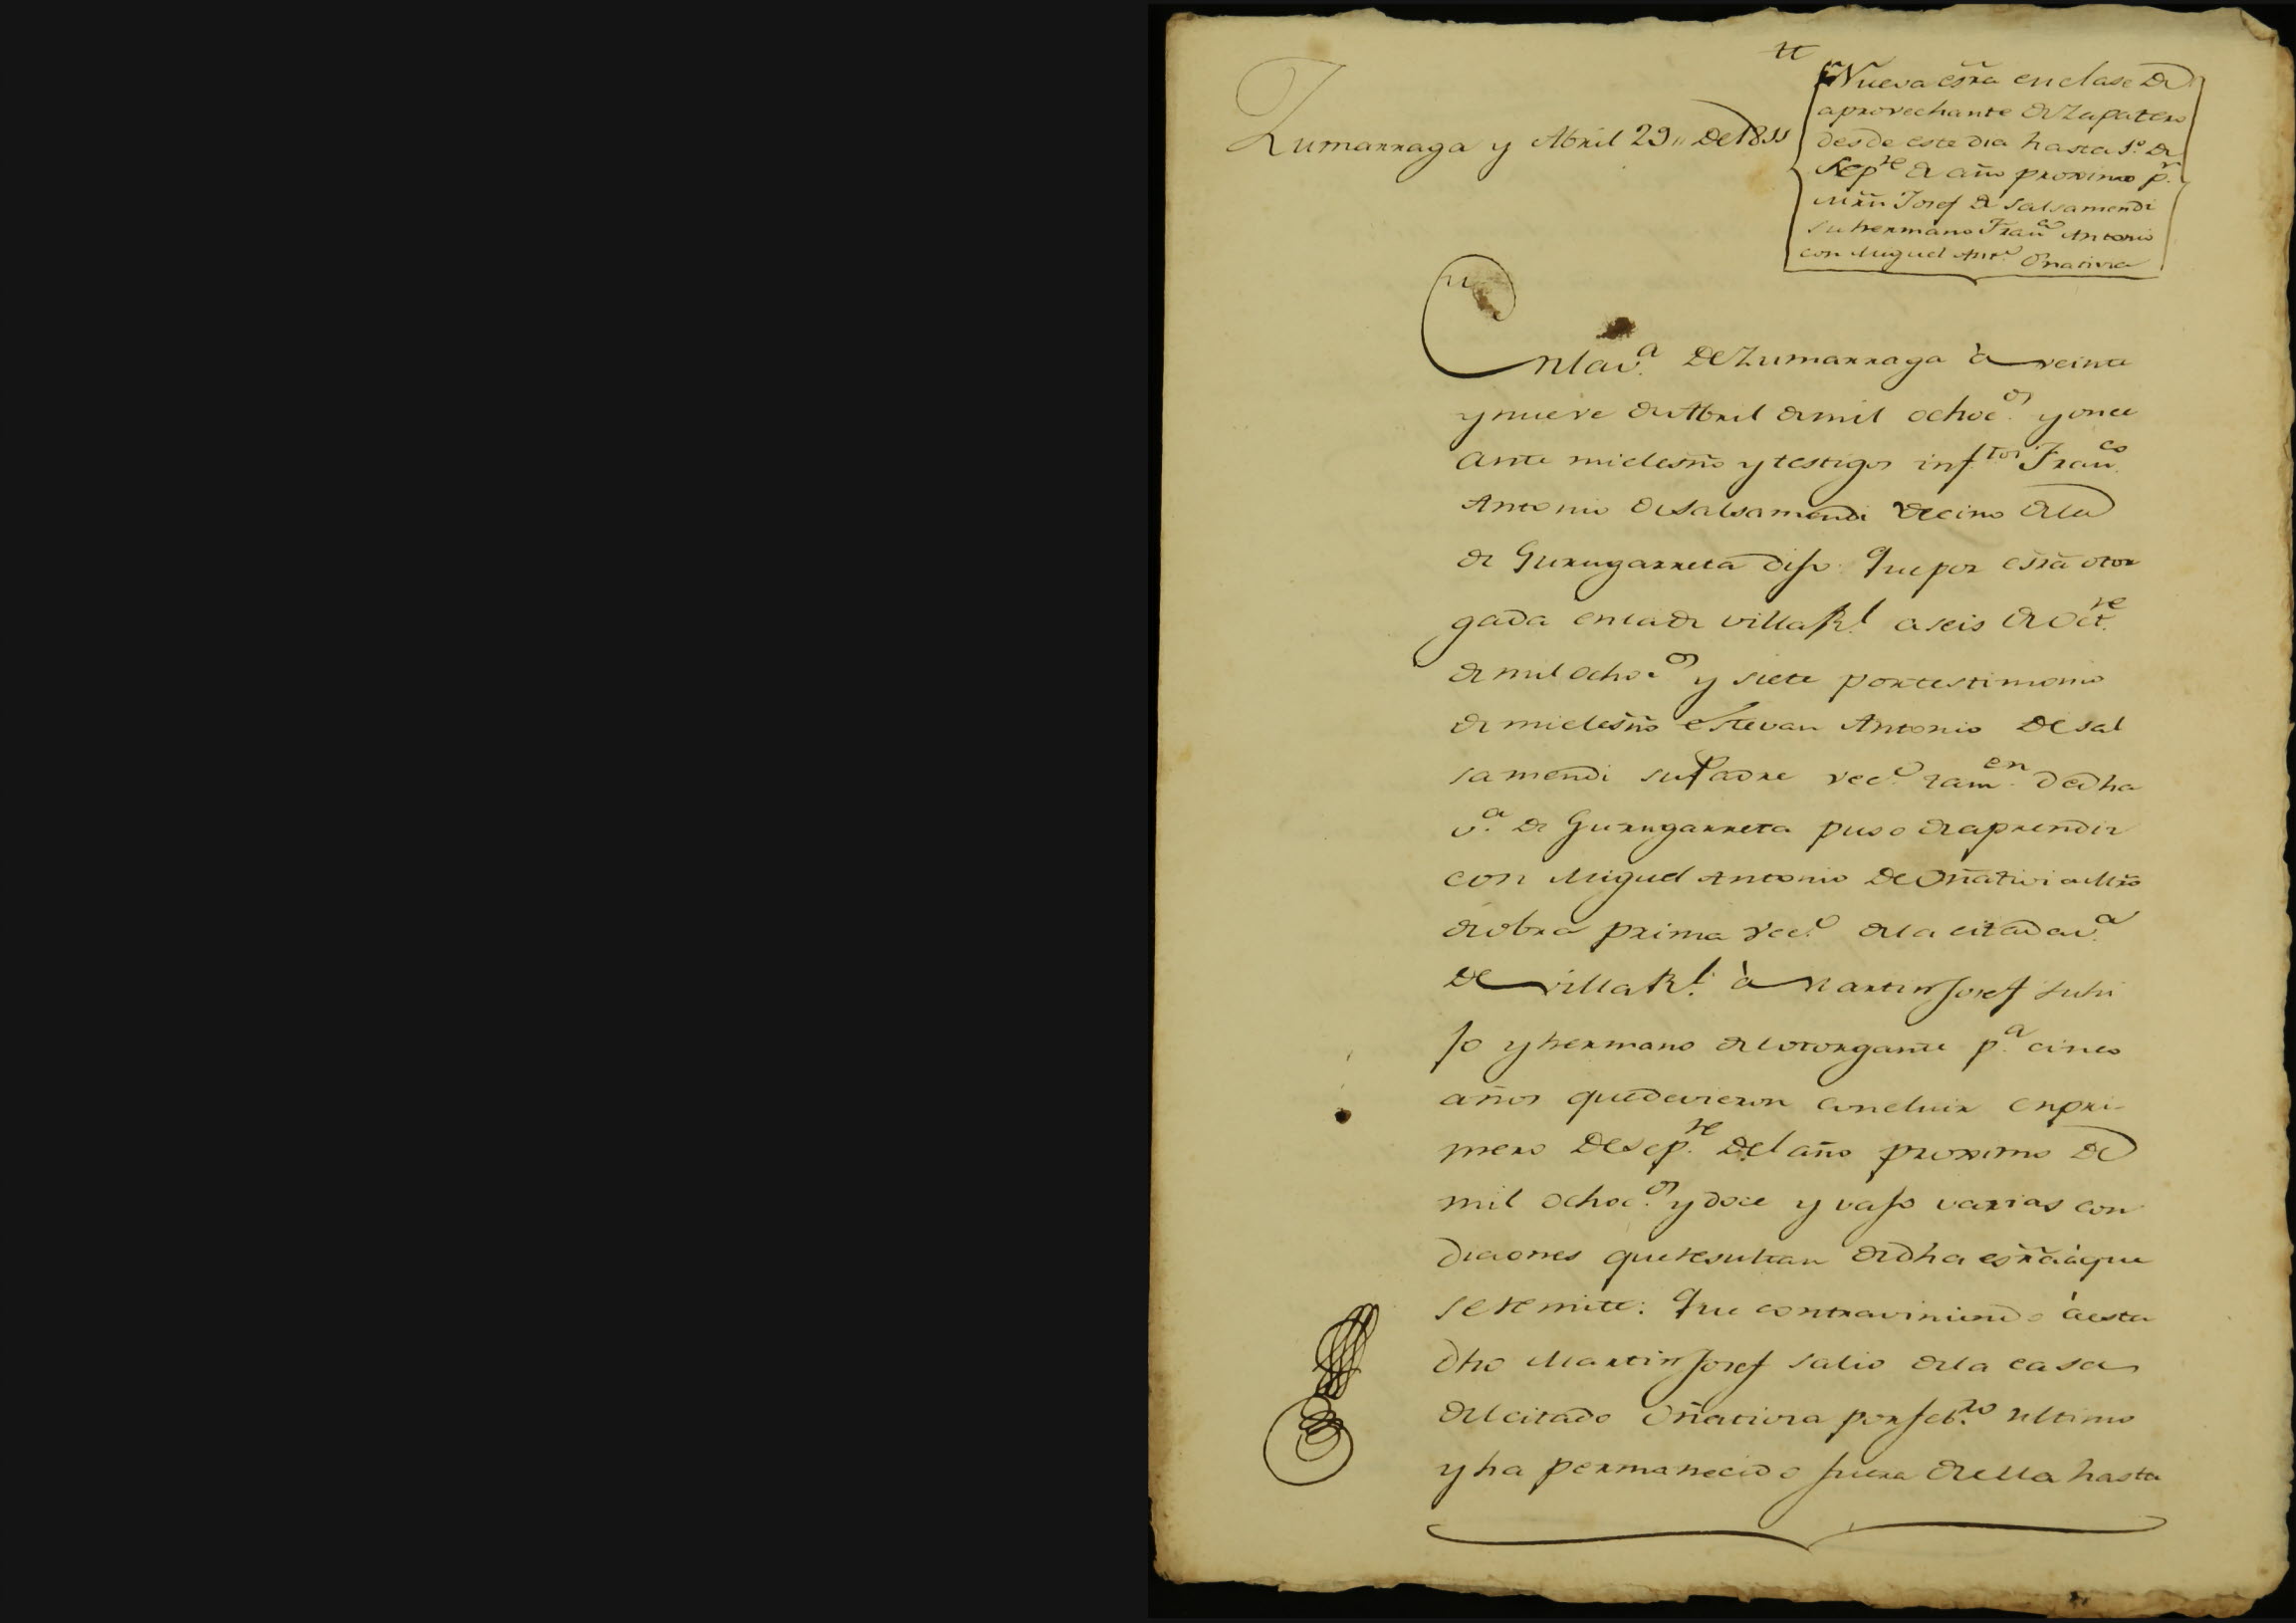 Zumarraga y Abril 29,, de 1811
Nueva esrã en clase de
aprovechante de Zapatero
desde este dia hasta 1º de
Sepre de año proximo pr
Mrñ Josef de Salsamendi
su hermano Franco Antonio
con Miguel Anto Oñativia
En la va de Zumarraga à veinte
y nueve de Abril de mil ochocos y once
ante mi el esño y testigos inftos Franco
Antonio de Salsamendi vecino de la
de Gurugarreta dijo: Que por esrã otor
gada en la de Villa Rl a seis de Octre
de mil ochocos y siete por testimonio
de mi el esño Estevan Antonio de Sal
samendi su Padre veco tamen de dha
va de Gurugarreta puso de aprendiz
con Miguel Antonio de Oñativia Mrõ
de obra prima veco de la citada va
de Villa Rl à Martin Josef su hi
jo y hermano del otorgante pa cinco
años que devieron concluir en pri
mero de Sepre del año proximo de
mil ochocos y doce y vajo varias con
diciones que resultan de dha esrã à que
se remite: Que contraviniendo à esta
dho Martin Josef salio de la casa
del citado Oñativia por febro ultimo
y ha permanecido fuera de ella hasta